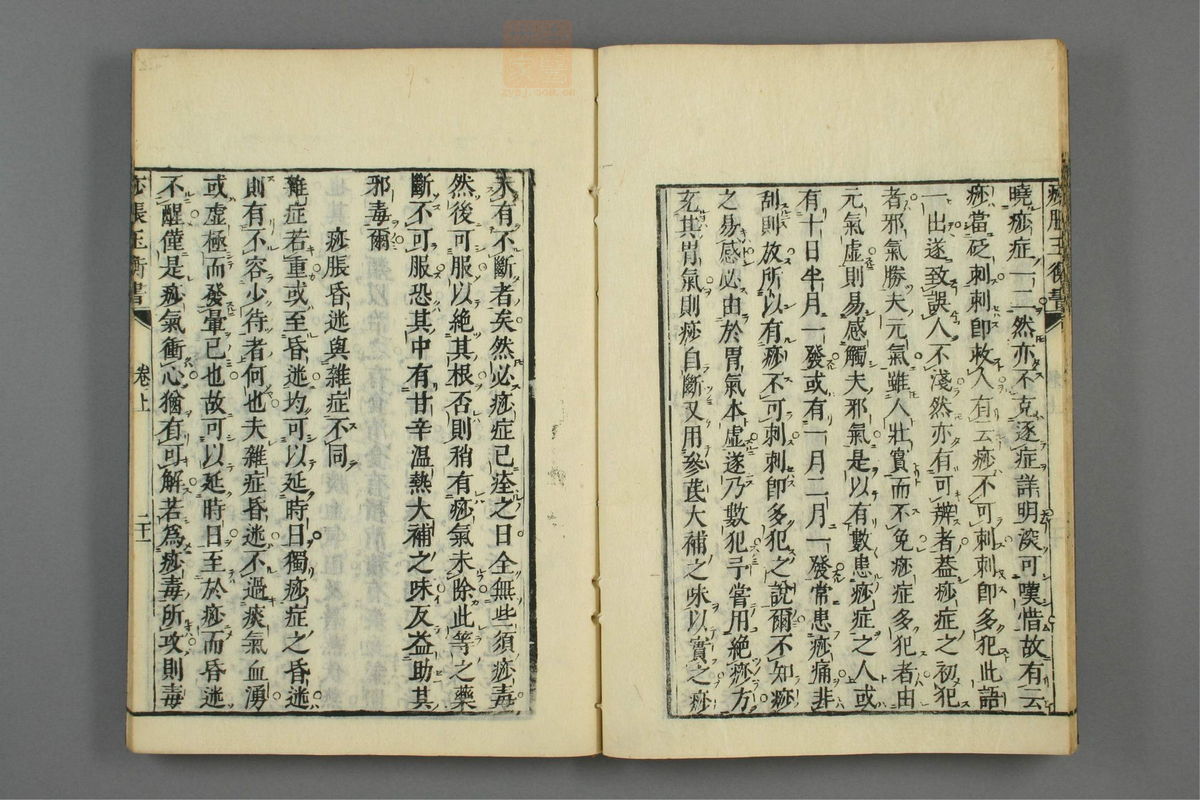 曉痧症一二然亦不克逐症詳明深可嘆惜故有云
痧當砭刺刺卽救人有云痧不可刺刺卽多犯此語
一出遂致誤人不淺然亦有可辨者葢痧症之初犯
者邪氣勝夫元氣雖人壯實而不免痧症多犯者由
元氣虛則易感觸夫邪氣是以有數患痧症之人或
有十日半月一發或有一月二月一發常患痧痛非
刮則放所以有痧不可刺刺卽多犯之說爾不知痧
之易感必由於胃氣本虛遂乃數犯予嘗用絕痧方
充其胃氣則痧自斷又用參芪大補之味以實之痧
未有不斷者矣然必痧症已痊之日全無些須痧毒
然後可服以絕其根否則稍有痧氣未除此等之藥
斷不可服恐其中有甘辛溫熱大補之味反益助其
邪毒爾
痧脹昏迷與雜症不同
雜症若重或至昏迷均可以延時日獨痧症之昏迷
則有不容少待者何也夫雜症昏迷不過痰氣血湧
或虛極而發暈已也故可以延時日至於痧而昏迷
不醒僅是痧氣衝心猶有可解若爲痧毒所攻則毒
痧脹玉衡書 卷上